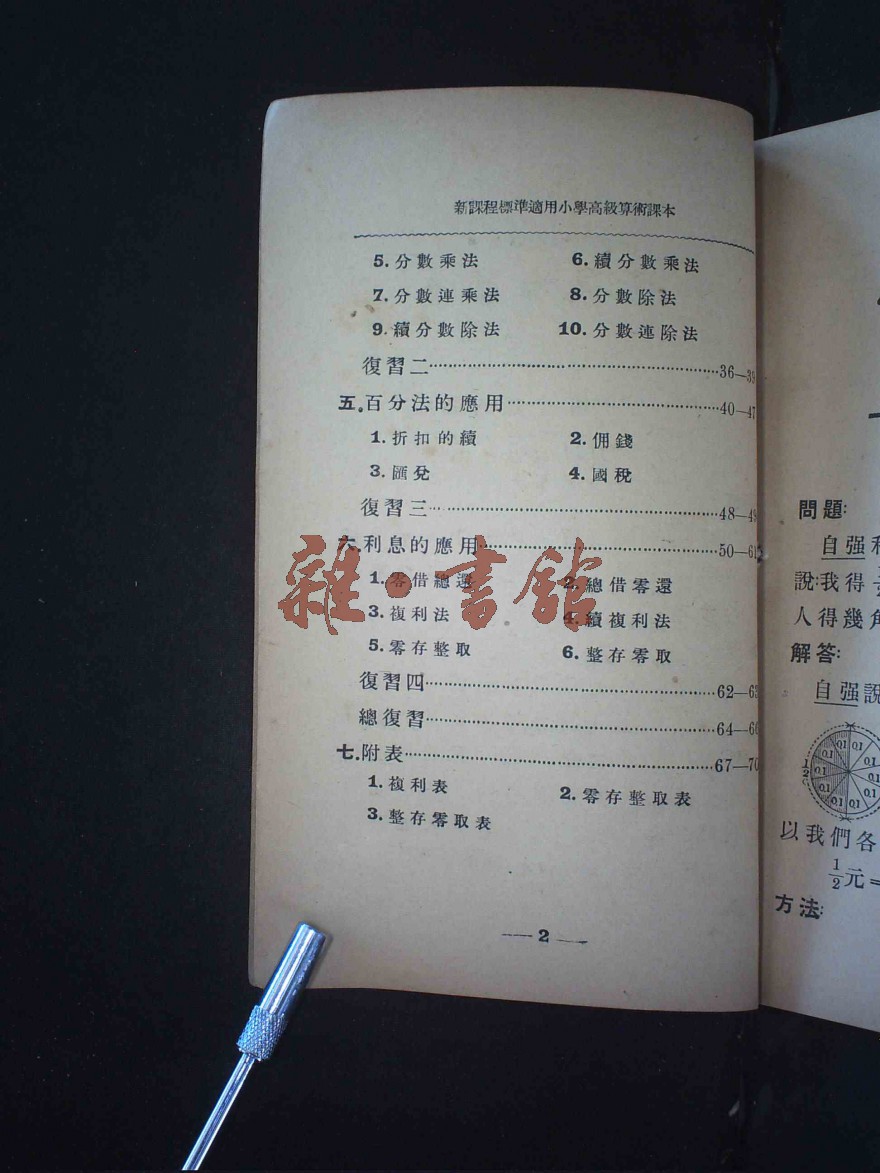 新課程標準適用小學高級算術課本
5. 分數乘法 6. 續分數乘法
7. 分數連乘法 8. 分數除法
9. 續分數除法 10. 分數連除法
復習二……36—39
五. 百分法的應用……40—47
1. 折扣的續 2. 佣錢
3. 匯兌 4. 國稅
復習三……48—49
六. 利息的應用……50—61
1. 零借總還 2. 總借零還
3. 複利法 4. 續複利法
5. 零存整取 6. 整存零取
復習四……62—63
總復習……64—66
七. 附表……67—70
1. 複利表 2. 零存整取表
3. 整存零取表
— 2 —
雜·書館
問題:
自强和
說:我得
人得幾角
解答:
自强說
以我們各
1/2元=
方法: